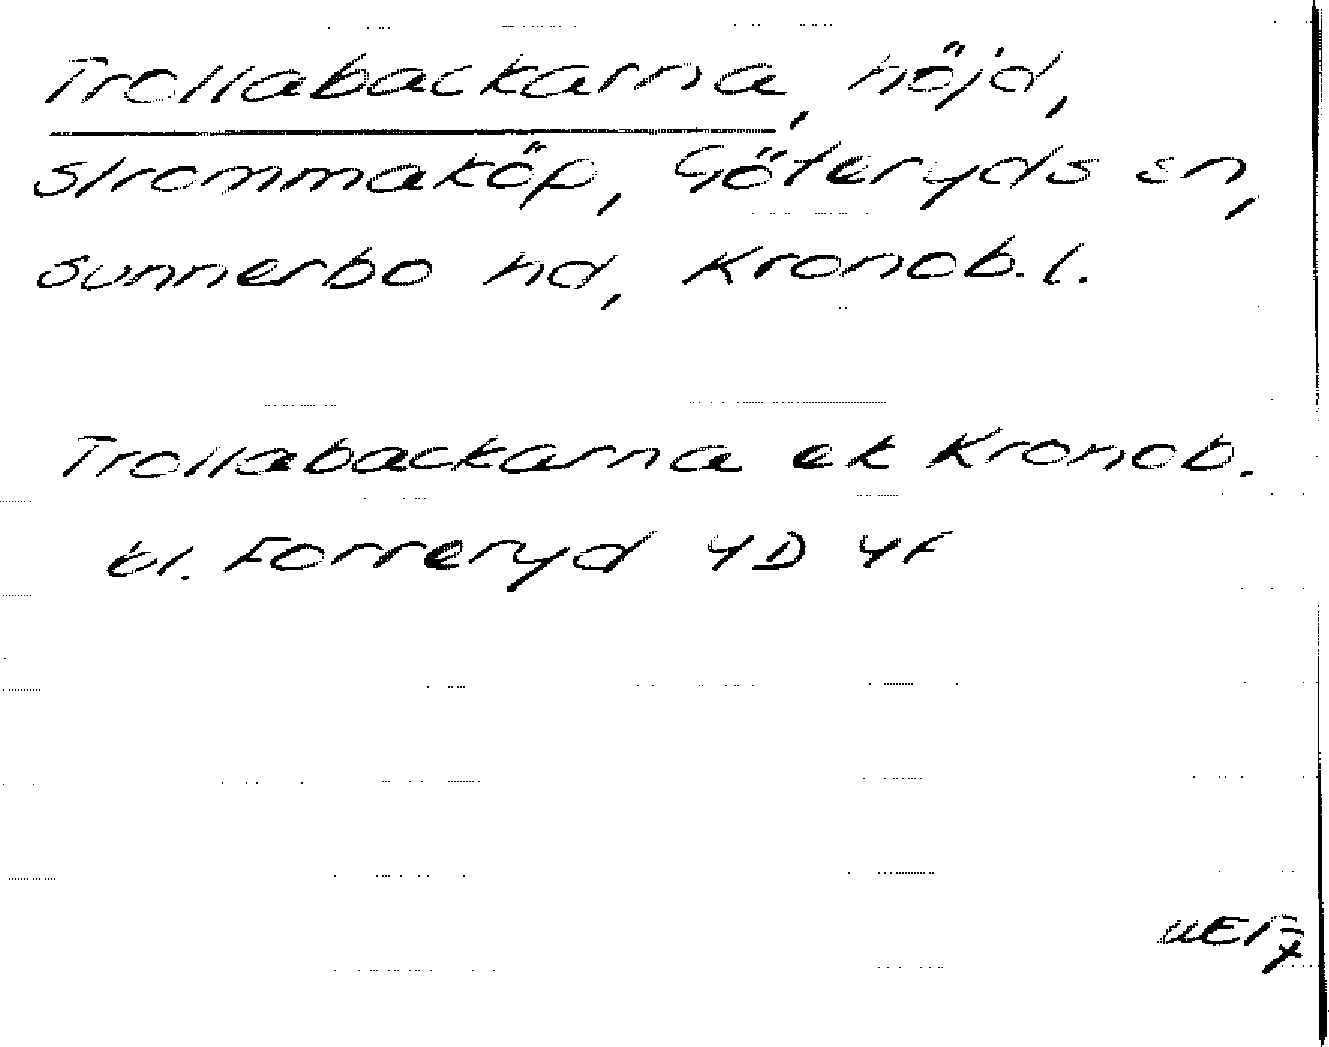 Trollabackarna, höjd,
strommaköp, Göteryds sn,
sunnerbo hd, Kronob. l.
Trollabackarna ek Kronob.
bl. Forreryd 4D 4f